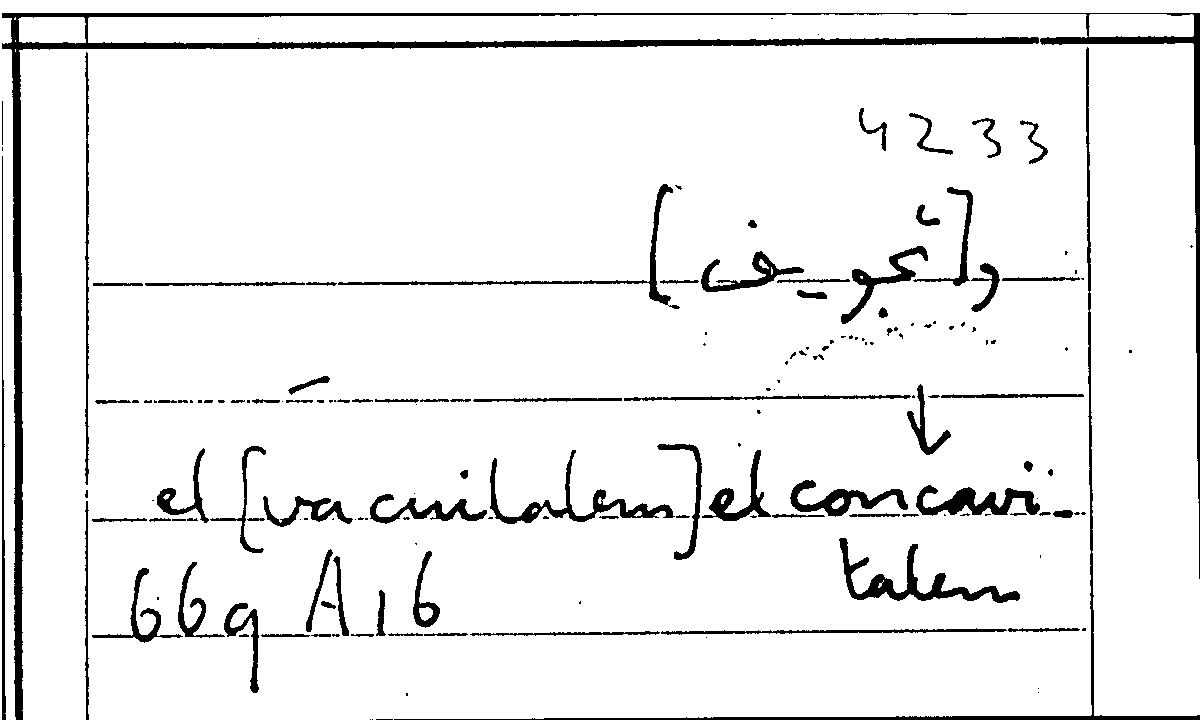 4233
و[تجويف]
↓
et [vacuitatem] et concavi-
tatem
669 A 16